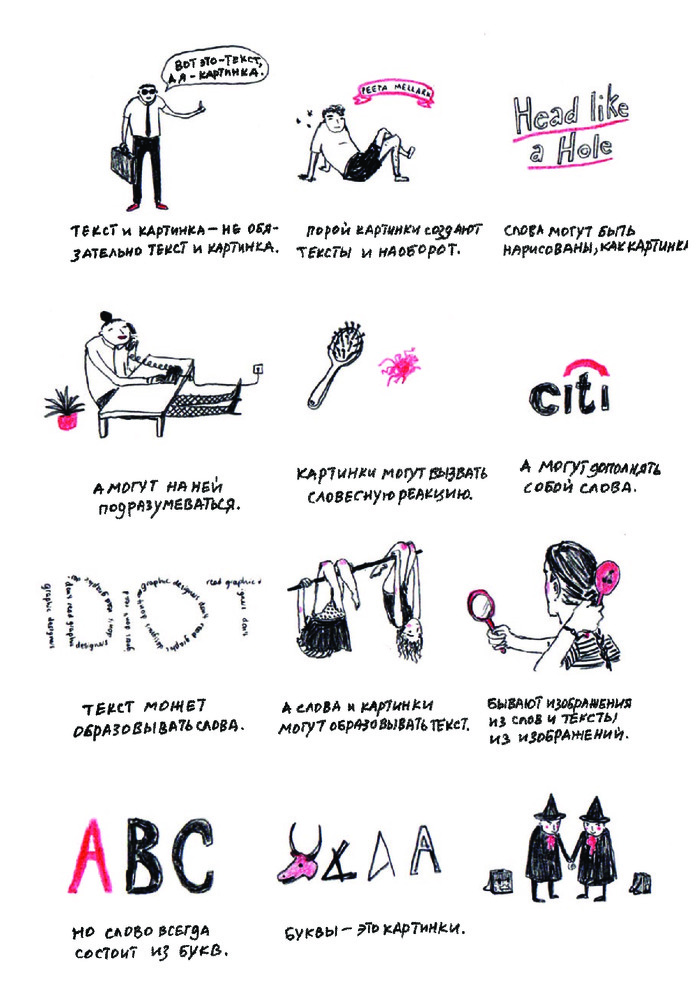 ВОТ ЭТО-ТЕКСТ,
А Я-КАРТИНКА.
PEETA MELLARK
Head like
a Hole
ТЕКСТ И КАРТИНКА — НЕ ОБЯ-
ЗАТЕЛЬНО ТЕКСТ И КАРТИНКА.
ПОРОЙ КАРТИНКИ СОЗДАЮТ
ТЕКСТЫ И НАОБОРОТ.
СЛОВА МОГУТ БЫТЬ
НАРИСОВАНЫ, КАК КАРТИНКА
citi
А МОГУТ НА НЕЙ
ПОДРАЗУМЕВАТЬСЯ.
КАРТИНКИ МОГУТ ВЫЗВАТЬ
СЛОВЕСНУЮ РЕАКЦИЮ.
А МОГУТ ДОПОЛНЯТЬ
СОБОЙ СЛОВА.
graphic designers dont read graphic designers
ТЕКСТ МОЖЕТ
ОБРАЗОВЫВАТЬ СЛОВА.
А СЛОВА И КАРТИНКИ
МОГУТ ОБРАЗОВЫВАТЬ ТЕКСТ.
БЫВАЮТ ИЗОБРАЖЕНИЯ
ИЗ СЛОВ И ТЕКСТЫ
ИЗ ИЗОБРАЖЕНИЙ.
ABC
A A
НО СЛОВО ВСЕГДА
СОСТОИТ ИЗ БУКВ.
БУКВЫ — ЭТО КАРТИНКИ.